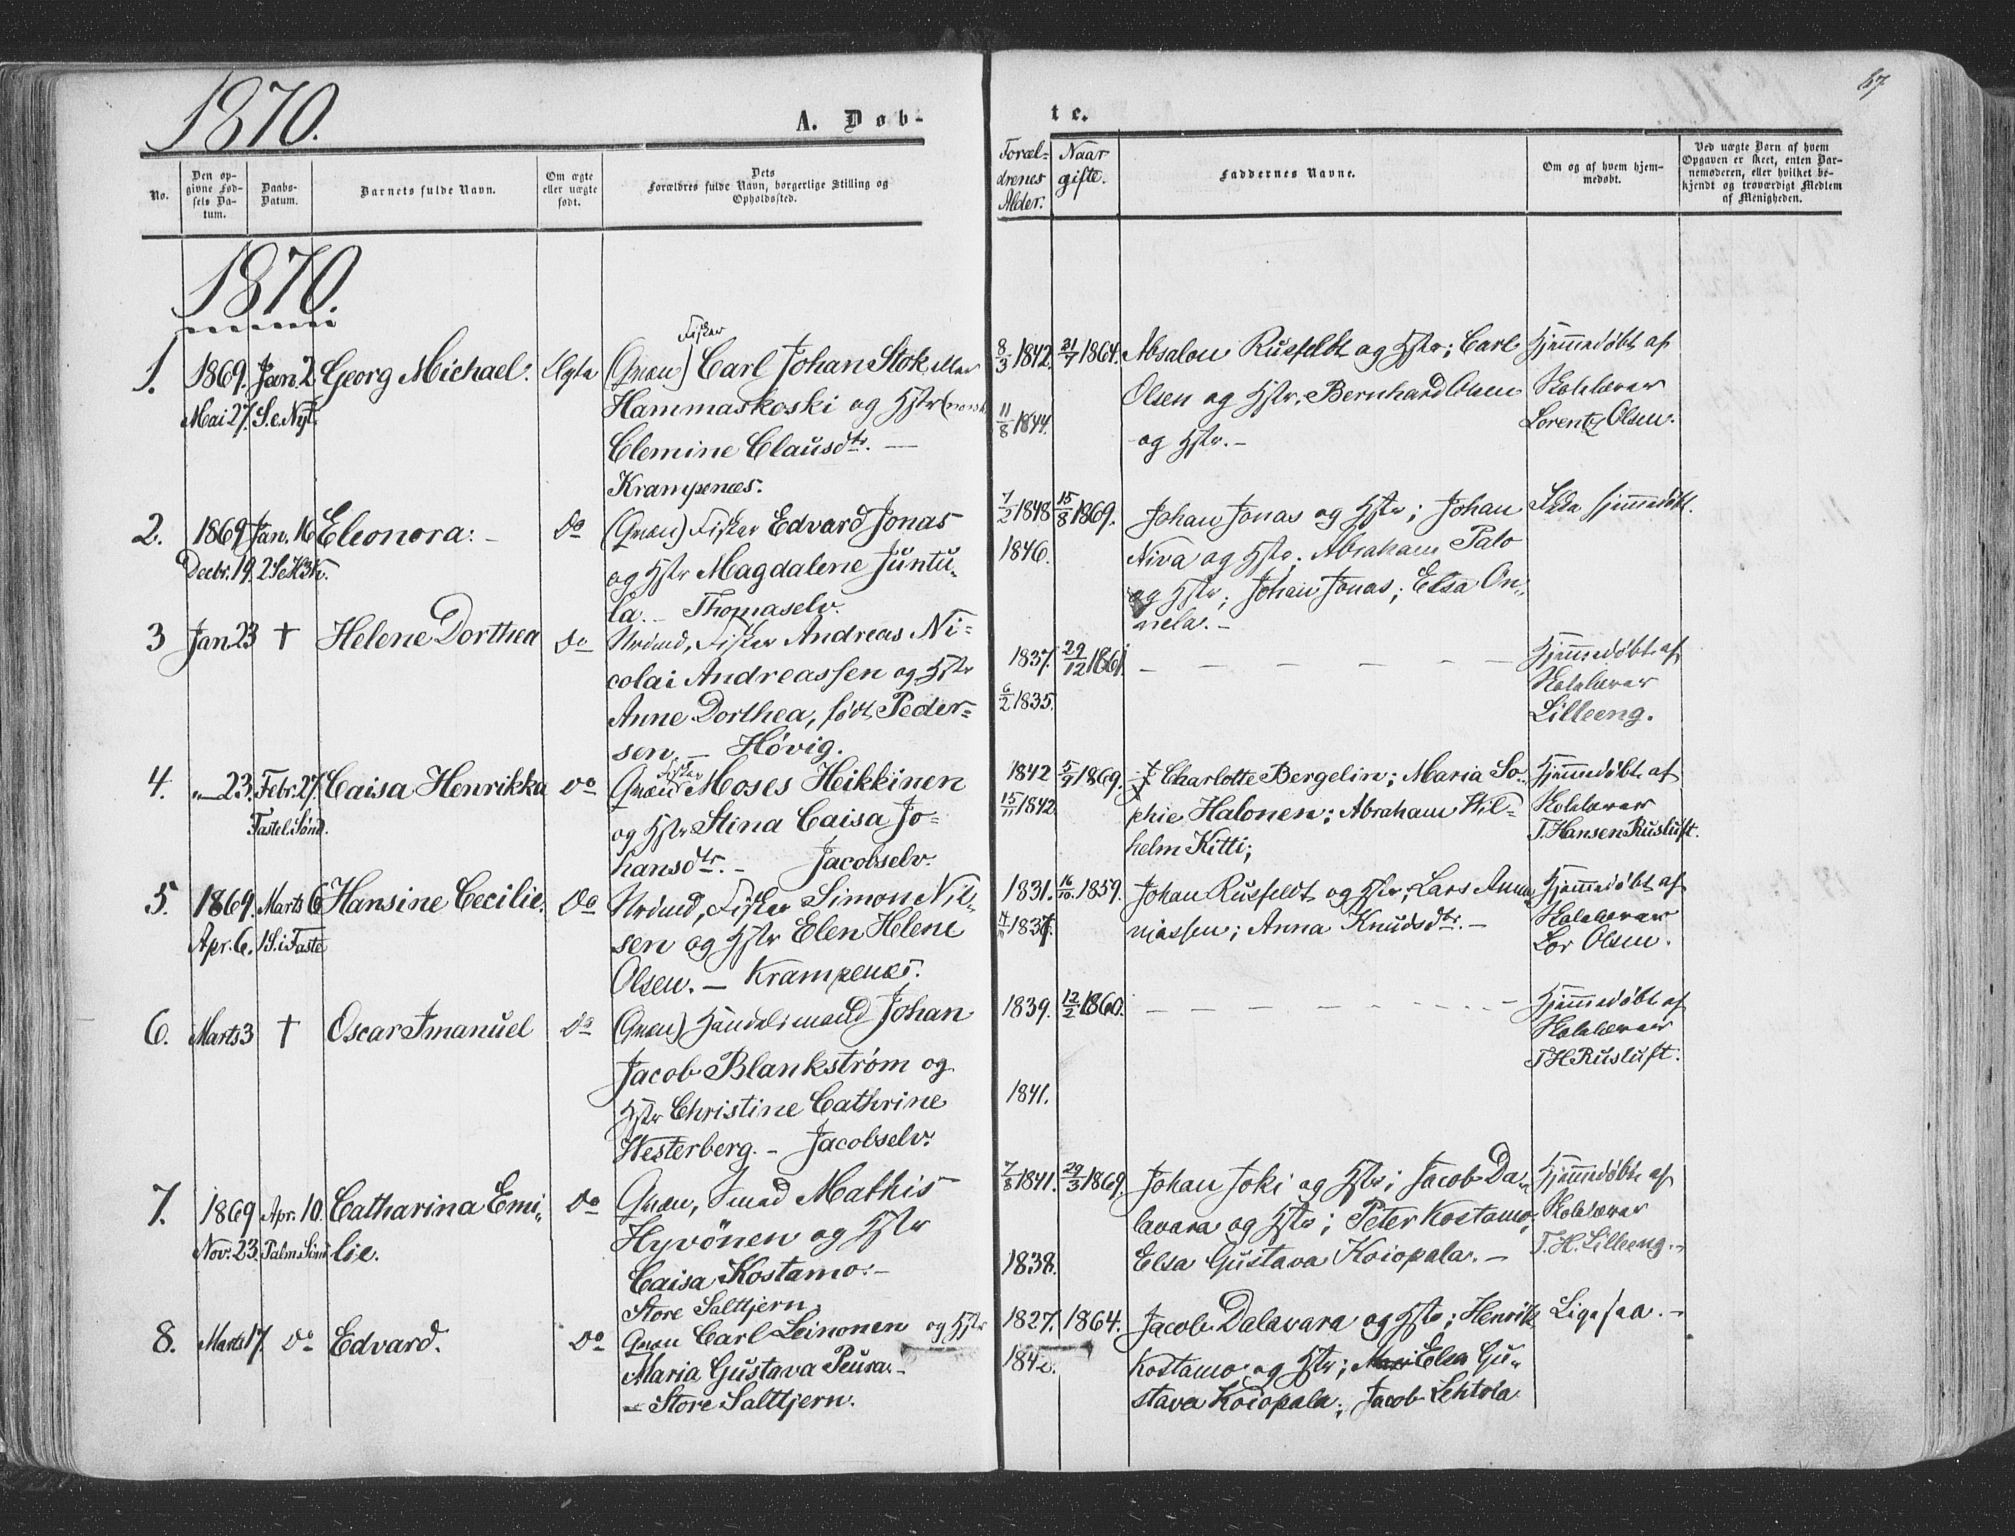 1870.
A. Døb-
te.
67
No.
Den op-
givne Fød-
sels Da-
tum.
Daabs-
Datum.
Barnets fulde Navn.
Om ægte
eller uægte
født.
Dets
Forældres fulde Navn, borgerlige Stilling og
Opholdssted.
Foræl-
drenes
Alder.
Naar
gifte.
Faddernes Navne.
Om og af hvem hjem-
medøbt.
Ved uægte Børn af hvem
Opgaven er skeet, enten Bar-
nemoderen, eller hvilket be-
kjendt og troværdigt Medlem
af Menigheden.
1870.
1. 1869. Jan. 2 Georg Michael. Ægte (Qvæn) Fisker Carl Johan Stok eller
Mai 27. S.e.Nyt.
Hammaskoski og Hstr (norsk
Clemine Clausdtr. —
Krampenæs.
8/3 1842. 31/7 1864.
11/8 1844.
Absalon Rusfeldt og Hstr; Carl
Olsen og Hstr. Bernhard Olsen
og Hstr. —
Hjemmedøbt af
Kokkevær
Lorentz Olsen.
2. 1869 Jan. 16 Eleonora. — do (Qvæn) Fisker Edvard Jonas
Decbr. 19. 2 S.e.H3K.
og Hstr Magdalene Juntu-
la. — Thomaselv.
7/2 1848 15/8 1869.
1846.
Johan Jonas og Hstr; Johan
Niva og Hstr; Abraham Palo
og Hstr; Johan Jonas; Elsa On-
nela. —
Ikke hjemmedøbt.
3 Jan. 23 † Helene Dorthea do Nrdmd, Fisker Andreas Ni-
colai Andreassen og Hstr
Anne Dorthea, født Peder-
sen. — Høvig.
1837. 29/12 1861.
6/2 1835.
Hjemmedøbt af
Kokkevær
Lilleeng.
4. „— 23. Febr. 27 Caisa Henrikka do Qvæn Fisker Moses Heikkinen
Fastel. Sønd.
og Hstr Stina Caisa Jo-
hansdtr. — Jacobselv.
1842 5/9 1869.
15/11 1842.
† Charlotte Bergelin; Maria So-
phie Halonen; Abraham Wil-
helm Kitti;
Hjemmedøbt af
Kokkevær
T. Hansen Rusluft.
5. 1869. Marts 6 Hansine Cecilie. do Nrdmd, Fisker Simon Nil-
Apr. 6. 1 S. i Faste
sen og Hstr Elen Helene
Olsen. — Krampenæs.
1831. 16/10 1859.
1837.
Johan Rusfeldt og Hstr; Lars Anan-
niassen; Anna Knudsdtr. —
Hjemmedøbt af
Kokkevær
Lor Olsen.
6. Marts 3 † Oscar Imanuel do (Qvæn) Handelsmand Johan
Jacob Blankstrøm og
Hstr Christine Cathrine
Westerberg. — Jacobselv.
1839. 12/2 1860.
1841.
Hjemmedøbt af
Kokkevær
T. H Rusluft.
7. 1869 Apr. 10. Catharina Emi- do Qvæn, Smed Mathis
Nov. 23. Palm Sønd lie.
Hyvönen og Hstr
Caisa Kostamo. —
Store Salttjern.
7/8 1841. 29/3 1869.
1838.
Johan Joki og Hstr; Jacob Da-
lavara og Hstr; Peter Kostamo;
Elsa Gustava Koiopala. —
Hjemmedøbt af
Kokkevær
T. H. Lilleeng. —
8. Marts 17. do Edvard. do Qvæn Carl Leinonen og Hstr
Maria Gustava Peura. —
— Store Salttjern.
1827. 1864.
Jacob Dalavara og Hstr; Henrik
Kostamo og Hstr; Elsa Gu-
stava Koiopala; Jacob Lehtola
Ligesaa. —